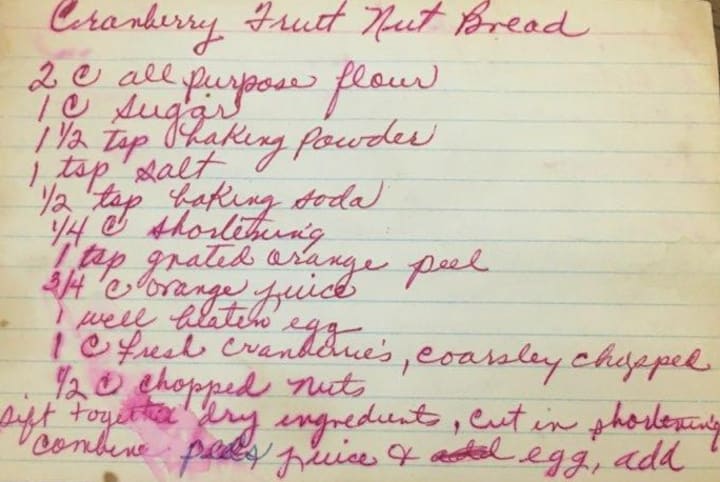 Cranberry Fruit Nut Bread
2 C all purpose flour
1 C sugar
1 1/2 tsp baking powder
1 tsp salt
1/2 tsp baking soda
1/4 C shortening
1 tsp grated orange peel
3/4 C orange juice
1 well beaten egg
1 C fresh cranberries, coarsley chopped
1/2 C chopped nuts
Sift together dry ingredients, cut in shortening
Combine peel, juice & egg, add